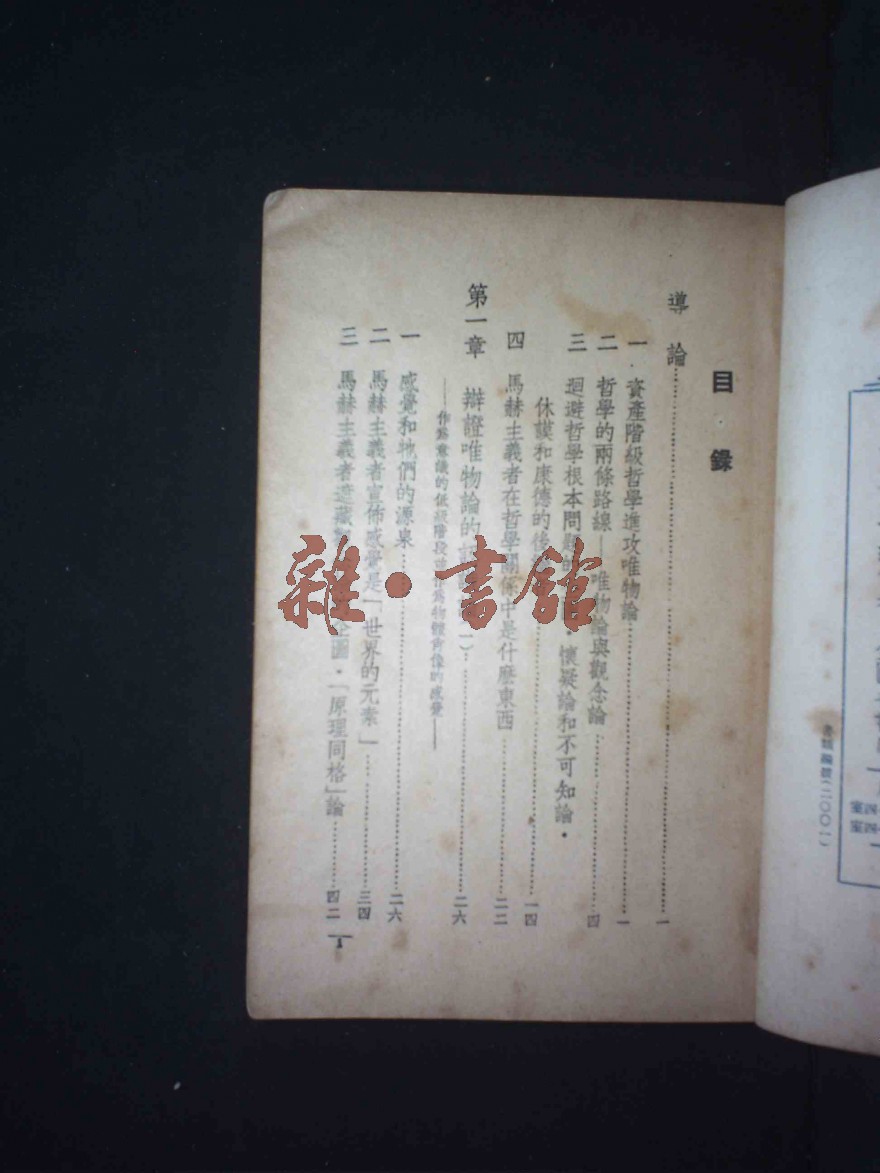 目錄
導論……一
一 資產階級哲學進攻唯物論……一
二 哲學的兩條路線——唯物論與觀念論……四
三 迴避哲學根本問題的 懷疑論和不可知論・
休謨和康德的後……一四
四 馬赫主義者在哲學關係中是什麼東西……二二
第一章 辯證唯物論的 (一)……二六
——作為意識的低級階段 為物體肖像的感覺——
一 感覺和牠們的源泉……二六
二 馬赫主義者宣佈感覺是「世界的元素」……三四
三 馬赫主義者遮藏 企圖・「原理同格」論……四二
1
雜・書館
書號編號(二〇〇一)